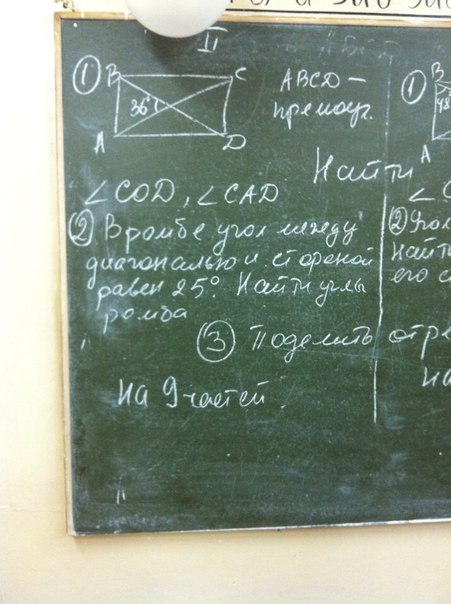 II
① B C ABCD –
36° прямоуг.
A D
Найти
∠COD, ∠CAD
② В ромбе угол между
диагональю и стороной
равен 25°. Найти углы
ромба
③ Поделить отре
на 9 частей.
① B
48
A
∠
② Угол
найти
его с
на